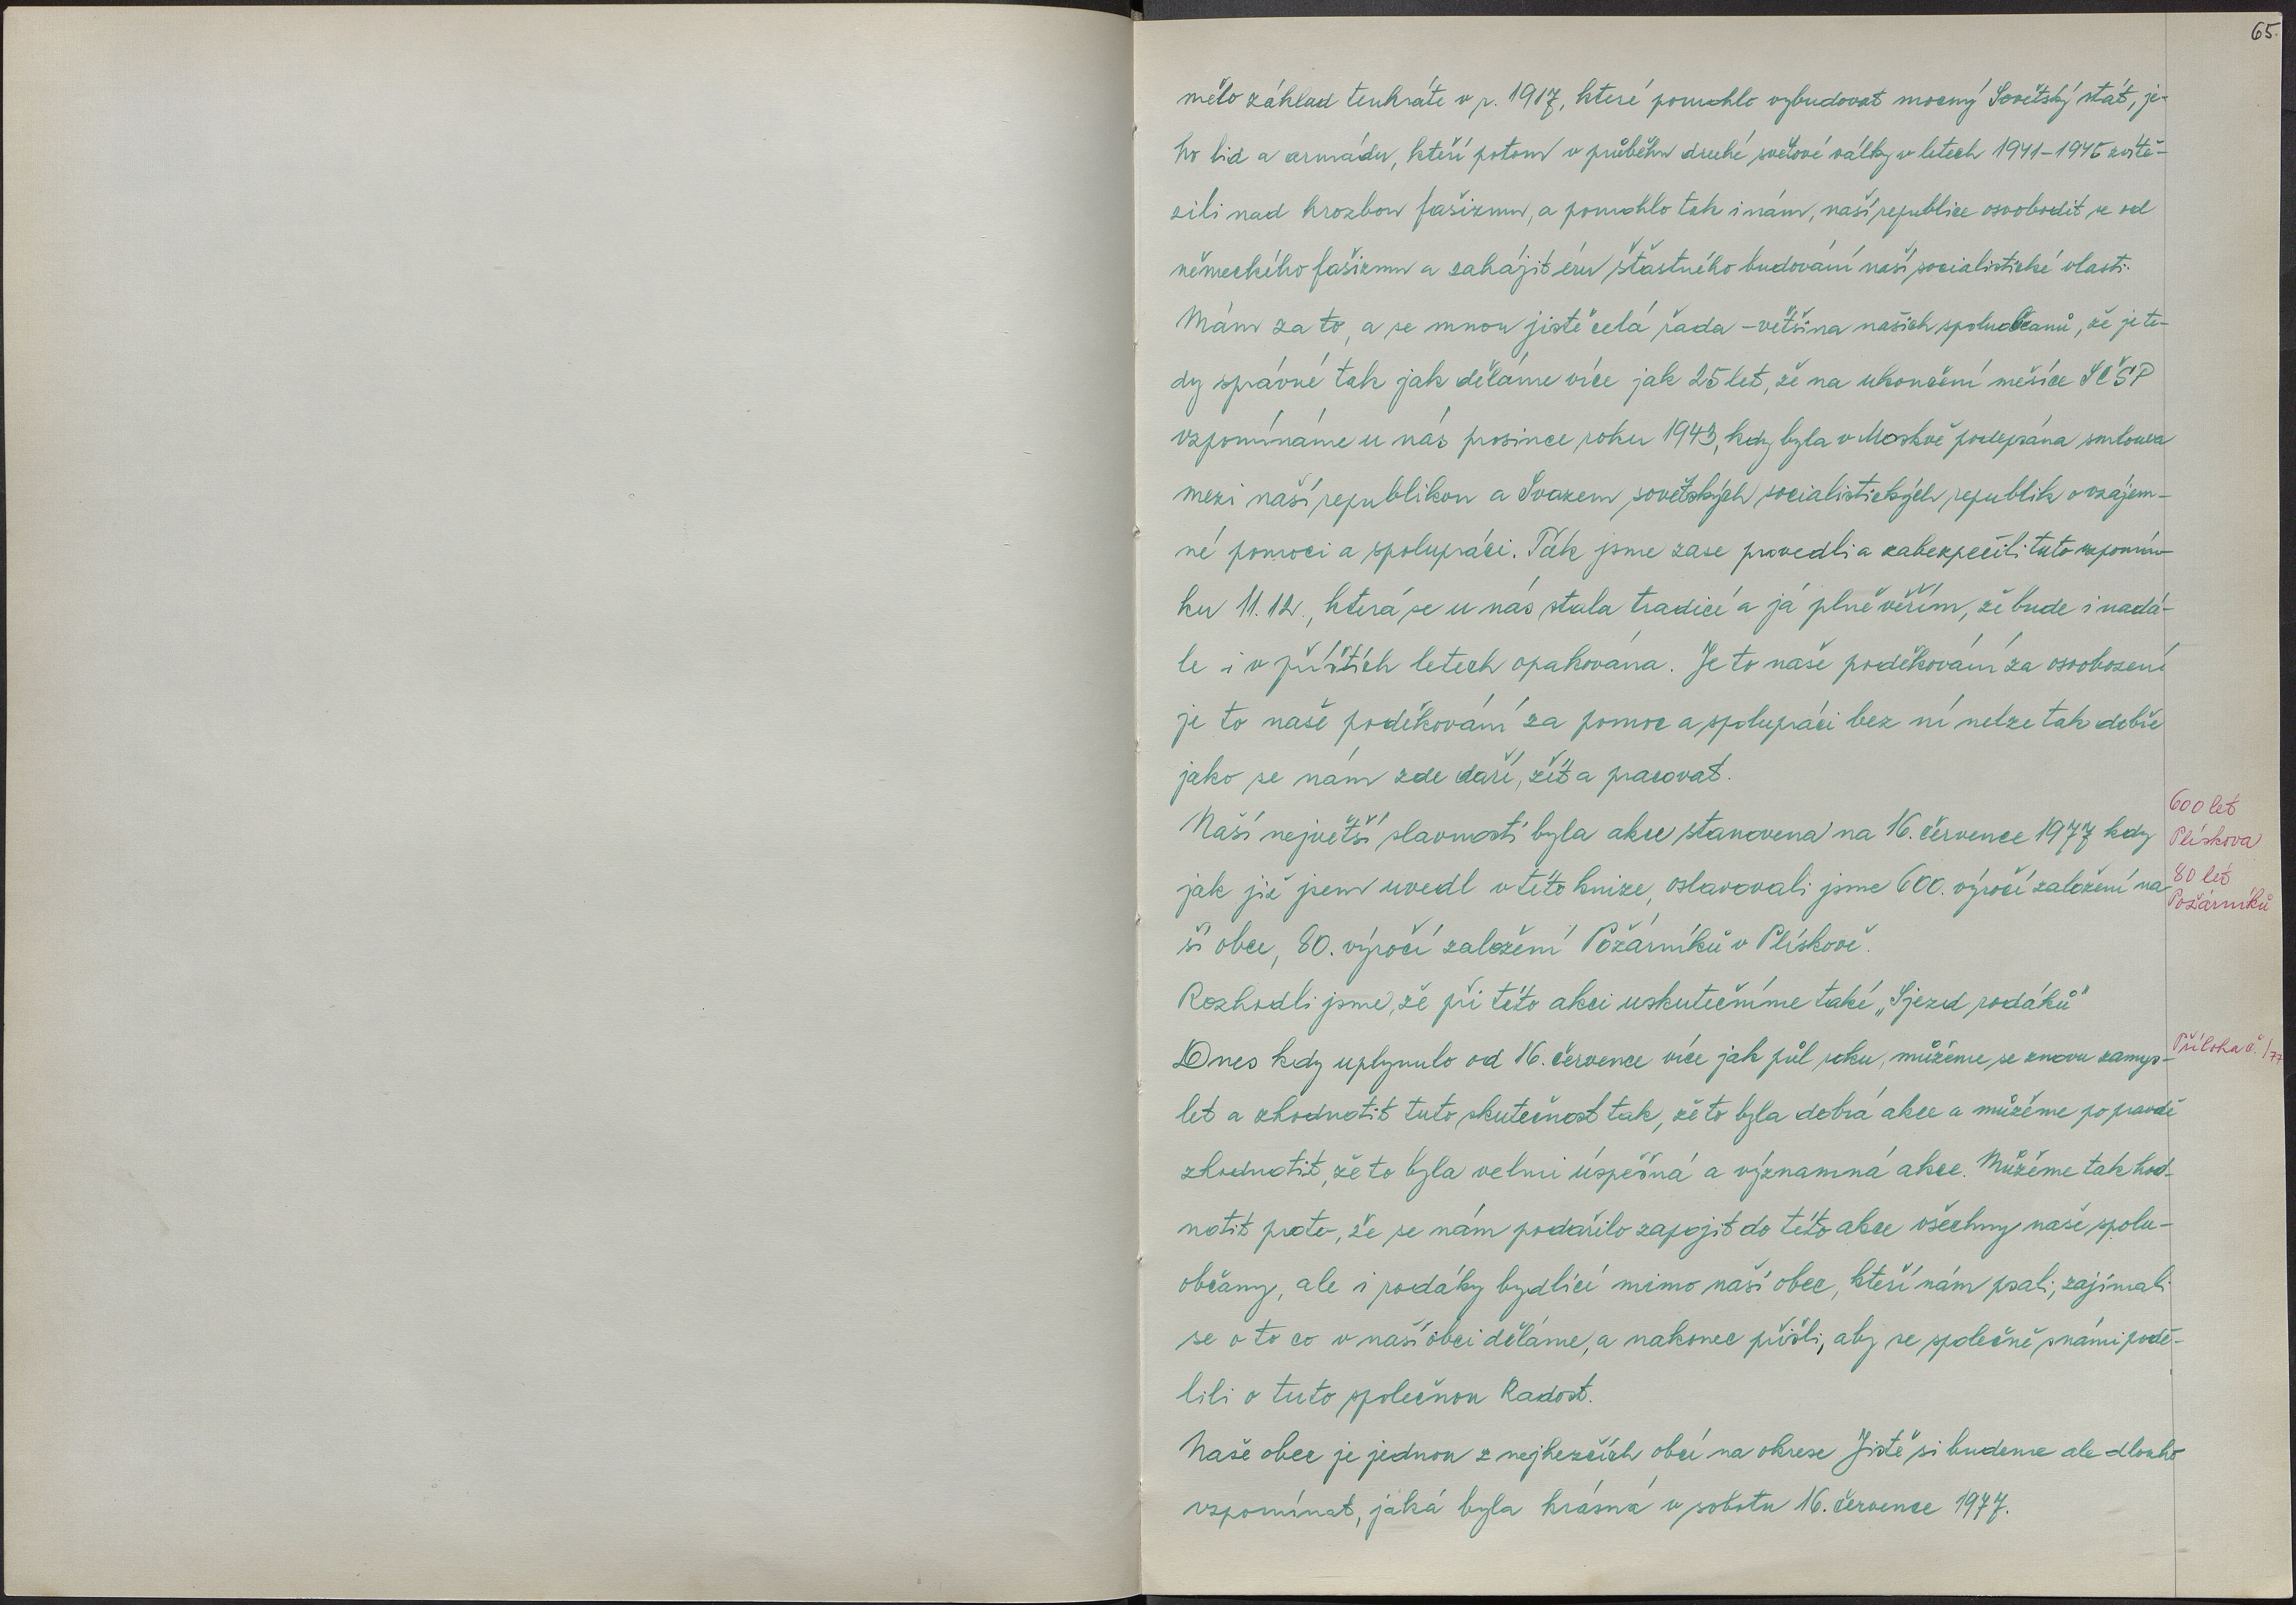 65.
mělo základ tenkráte v r. 1917, které pomohlo vybudovat mocný Sovětský stát, je-
ho lid a armádu, kteří potom v průběhu druhé světové války v letech 1941-1945 zvítě-
zili nad hrozbou fašizmu, a pomohlo tak i nám, naší republice osvobodit se od
německého fašizmu a zahájit éru šťastného budování naší socialistické vlasti.
Mám za to, a se mnou jistě celá řada - většina našich spoluobčanů, že je te-
dy správné tak jak děláme více jak 25 let, že na ukončení měsíce SČSP
vzpomínáme u nás prosince roku 1943, kdy byla v Moskvě podepsána smlouva
mezi naší republikou a Svazem sovětských socialistických republik o vzájem-
né pomoci a spolupráci. Ták jsme zase provedli a zabezpečili tuto vzpomín-
ku 11.12., která se u nás stala tradicí a já plně věřím, že bude i nadá-
le i v příštích letech opakována. Je to naše poděkování za osvobození
je to naše poděkování za pomoc a spolupráci bez ní nelze tak dobře
jako se nám zde daří, žít a pracovat.
Naší největší slavností byla akce stanovena na 16. července 1977 kdy
600 let
Plískova
jak již jsem uvedl v této knize, oslavovali jsme 600. výročí založení na-
80 let
Požárníků
ší obce, 80. výročí založení Požárníků v Plískově.
Rozhodli jsme, že při této akci uskutečníme také „Sjezd rodáků"
Dnes kdy uplynulo od 16. července více jak půl roku, můžeme se znovu zamys-
Příloha č. 1/77
let a zhodnotit tuto skutečnost tak, že to byla dobrá akce a můžeme po pravdě
zhodnotit, že to byla velmi úspěšná a významná akce. Můžeme tak hod-
notit proto, že se nám podařilo zapojit do této akce všechny naše spolu-
občany, ale i rodáky bydlící mimo naší obec, kteří nám psali, zajímali
se o to co v naší obci děláme, a nakonec přišli, aby se společně s námi podě-
lili o tuto společnou Radost.
Naše obec je jednou z nejhezčích obcí na okrese Jistě si budeme ale dlouho
vzpomínat, jaká byla krásná v sobotu 16. července 1977.